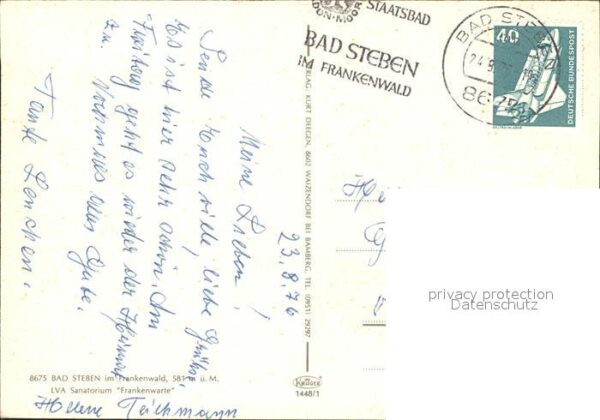 STAATSBAD
BAD STEBEN
IM FRANKENWALD
BAD STEBEN
24.8.76
8675
40
DEUTSCHE BUNDESPOST
23.8.76
Meine Lieben!
Sende Euch viele, liebe Grüße,
Es ist hier sehr schön. Am
Freitag geht es wieder der Heimat
zu. Nochmals alles Gute.
Tante Lenchen.
Helene Teichmann
VERLAG KURT DEEGEN, 8602 WANZENDORF BEI BAMBERG, TEL. 09511 29297
8675 BAD STEBEN im Frankenwald, 581 m ü. M.
LVA Sanatorium "Frankenwarte"
Krüger
1448/1
privacy protection
Datenschutz